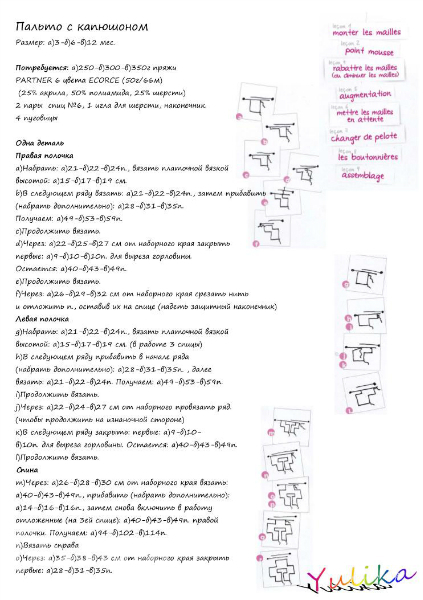 Пальто с капюшоном
Размер: а)3-б)6-в)12 мес.
Потребуется: а)250-б)300-в)350г пряжи
PARTNER 6 цвета ECORCE (50г/66м)
(25% акрила, 50% полиамида, 25% шерсти)
2 пары спиц №6, 1 игла для шерсти, наконечник
4 пуговицы
Одна деталь
Правая полочка
a)Набрать: а)21-б)22-в)24п., вязать платочной вязкой
высотой: а)15-б)17-в)19 см.
b)В следующем ряду вязать: а)21-б)22-в)24п., затем прибавить
(набрать дополнительно): а)28-б)31-в)35п.
Получаем: а)49-б)53-в)59п.
c)Продолжить вязать.
d)Через: а)22-б)25-в)27 см от наборного края закрыть
первые: а)9-б)10-в)10п. для выреза горловины
Остается: а)40-б)43-в)49п.
e)Продолжить вязать.
f)Через: а)26-б)29-в)32 см от наборного края срезать нить
и отложить п., оставив их на спице (надеть защитный наконечник)
Левая полочка
g)Набрать: а)21-б)22-в)24п., вязать платочной вязкой
высотой: а)15-б)17-в)19 см. (в работе 3 спицы)
h)В следующем ряду прибавить в начале ряда
(набрать дополнительно): а)28-б)31-в)35п. , далее
вязать: а)21-б)22-в)24п. Получаем: а)49-б)53-в)59п.
i)Продолжить вязать.
j)Через: а)22-б)24-в)27 см от наборного провязать ряд
(чтобы продолжить на изнаночной стороне)
k)В следующем ряду закрыть: первые: а)9-б)10-
в)10п. для выреза горловины. Остается: а)40-б)43-в)49п.
l)Продолжить вязать.
Спина
m)Через: а)26-б)28-в)30 см от наборного края вязать:
а)40-б)43-в)49п., прибавить (набрать дополнительно):
а)14-б)16-в)16п., затем снова включить в работу
отложенные (на 3ей спице): а)40-б)43-в)49п. правой
полочки. Получаем: а)94-б)102-в)114п.
n)Вязать справа
o)Через: а)35-б)38-в)43 см от наборного края закрыть
первые: а)28-б)31-в)35п.
monter les mailles
point mousse
rabattre les mailles
(ou diminuer les mailles)
augmentation
mettre les mailles
en attente
changer de pelote
les boutonnières
assemblage
Yulika